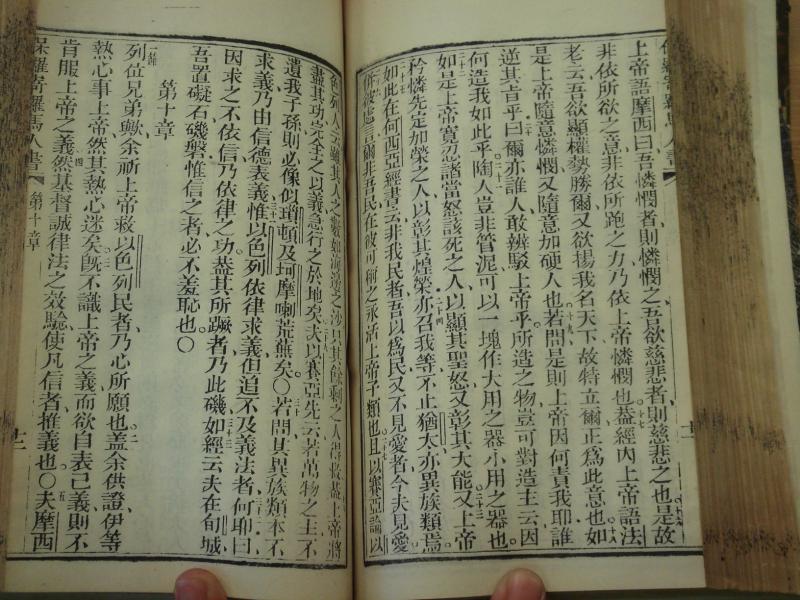 上帝語摩西曰吾憐憫者則憐憫之吾欲慈悲者則慈悲之也是故
非依所欲之意非依所跑之力乃依上帝憐憫也葢經內上帝語法
老云吾欲顯權勢勝爾又欲揚我名天下故特立爾正為此意也如
是上帝隨意憐憫又隨意加硬人也若問是則上帝因何責我耶誰
逆其旨乎曰爾亦誰人敢辨駁上帝乎所造之物豈可對造主云因
何造我如此乎陶人豈非管泥可以一塊作大用之器小用之器也
如是上帝寬忍諸當怒該死之人以顯其聖怒又彰其大能又上帝
矜憐先定加榮之人以彰其煌榮亦召我等不止猶太亦異族類焉
如此在何西亞經書云非我民者吾以為民又不見愛者今夫見愛
爾非吾民在彼可稱之永活上帝子類也且以賽亞論以
色列人云雖其人之數如海邊之沙只其餘剩之人得救葢上帝將
盡其功完全之以義急行之於地矣夫以賽亞先云若萬物之主不
遺我子孫則必像似瑣頓及坷摩喇荒蕪矣〇若問其異族類本不
求義乃由信德表義惟以色列依律求義但追不及義法者何耶曰
因求之不依信乃依律之功葢其所蹶者乃此磯如經云夫在旬城
吾置礙石磯磐惟信之者必不羞恥也〇
第十章
列位兄弟歟余祈上帝救以色列民者乃心所願也蓋余供證伊等
熱心事上帝然其熱心迷矣旣不識上帝之義而欲自表己義則不
肯服上帝之義然基督誠律法之效驗使凡信者推義也〇夫摩西
保羅寄羅馬人書
第十章
十二